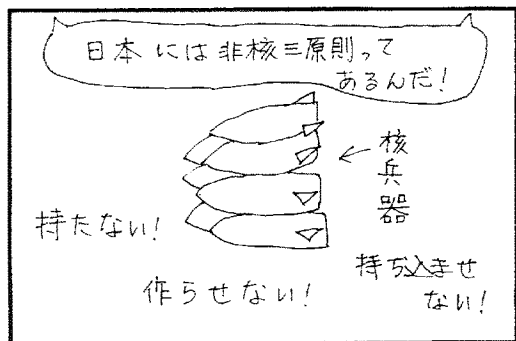 日本には非核三原則って
あるんだ！
核兵器
持たない！
作らせない！
持ち込ませ
ない！